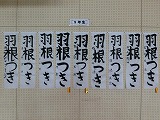 1年生
羽根つき
羽根つき
羽根つき
羽根つき
羽根つき
羽根つき
羽根つき
羽根つき